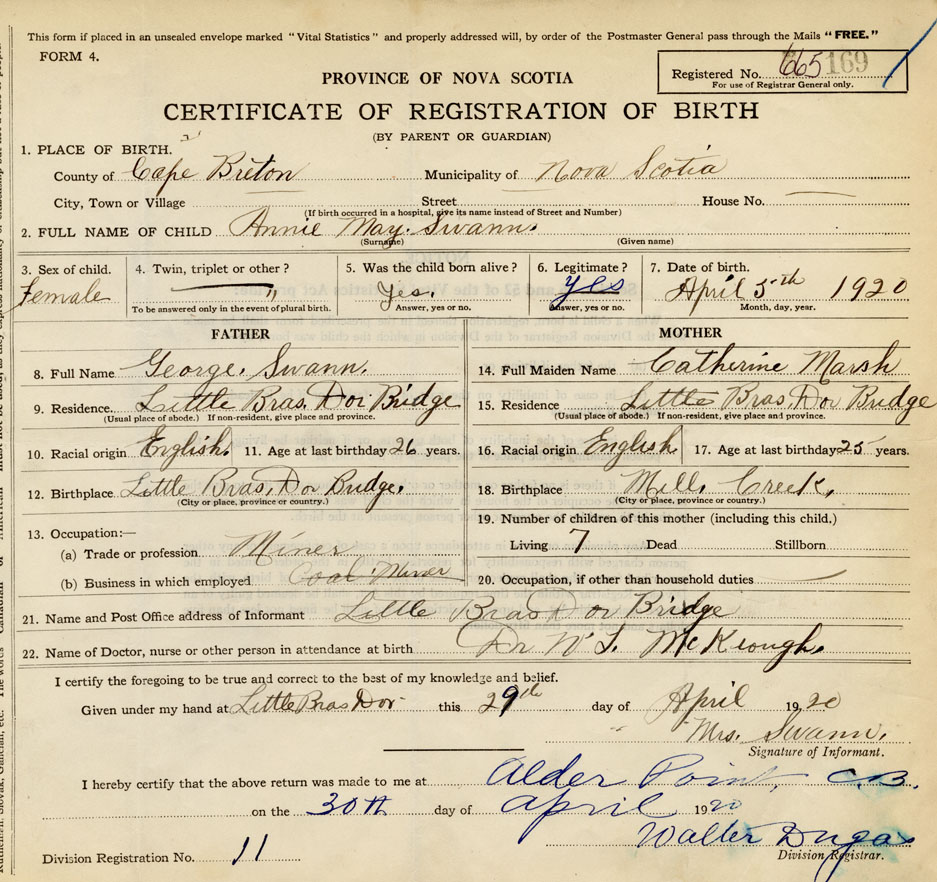 This form if placed in an unsealed envelope marked "Vital Statistics" and properly addressed will, by order of the Postmaster General pass through the Mails "FREE."
FORM 4.
Registered No. 665 169
For use of Registrar General only.
PROVINCE OF NOVA SCOTIA
CERTIFICATE OF REGISTRATION OF BIRTH
(BY PARENT OR GUARDIAN)
1. PLACE OF BIRTH.
County of Cape Breton Municipality of Nova Scotia
City, Town or Village Street House No.
(If birth occurred in a hospital, give its name instead of Street and Number)
2. FULL NAME OF CHILD Annie May. Swann.
(Surname) (Given name)
3. Sex of child. 4. Twin, triplet or other? 5. Was the child born alive? 6. Legitimate? 7. Date of birth.
Female " Yes. Yes April 5th 1920
To be answered only in the event of plural birth. Answer, yes or no. Answer, yes or no. Month, day, year.
FATHER MOTHER
8. Full Name George. Swann. 14. Full Maiden Name Catherine Marsh
9. Residence. Little Bras. Dor Bridge 15. Residence Little Bras Dor Bridge
(Usual place of abode.) If non-resident, give place and province. (Usual place of abode.) If non-resident, give place and province.
10. Racial origin English. 11. Age at last birthday 26 years. 16. Racial origin English. 17. Age at last birthday 25 years.
12. Birthplace Little Bras. Dor Bridge. 18. Birthplace Mill. Creek.
(City or place, province or country.) (City or place, province or country.)
13. Occupation:— 19. Number of children of this mother (including this child.)
(a) Trade or profession Miner Living 7 Dead Stillborn
(b) Business in which employed Coal Miner 20. Occupation, if other than household duties
21. Name and Post Office address of Informant Little Bras Dor Bridge
22. Name of Doctor, nurse or other person in attendance at birth Dr W. McKeough.
I certify the foregoing to be true and correct to the best of my knowledge and belief.
Given under my hand at Little Bras Dor this 29th day of April 1920
Mrs. Swann.
Signature of Informant.
I hereby certify that the above return was made to me at Alder Point, C.B.
on the 30th day of April 1920
Walter Dugas
Division Registrar.
Division Registration No. 11